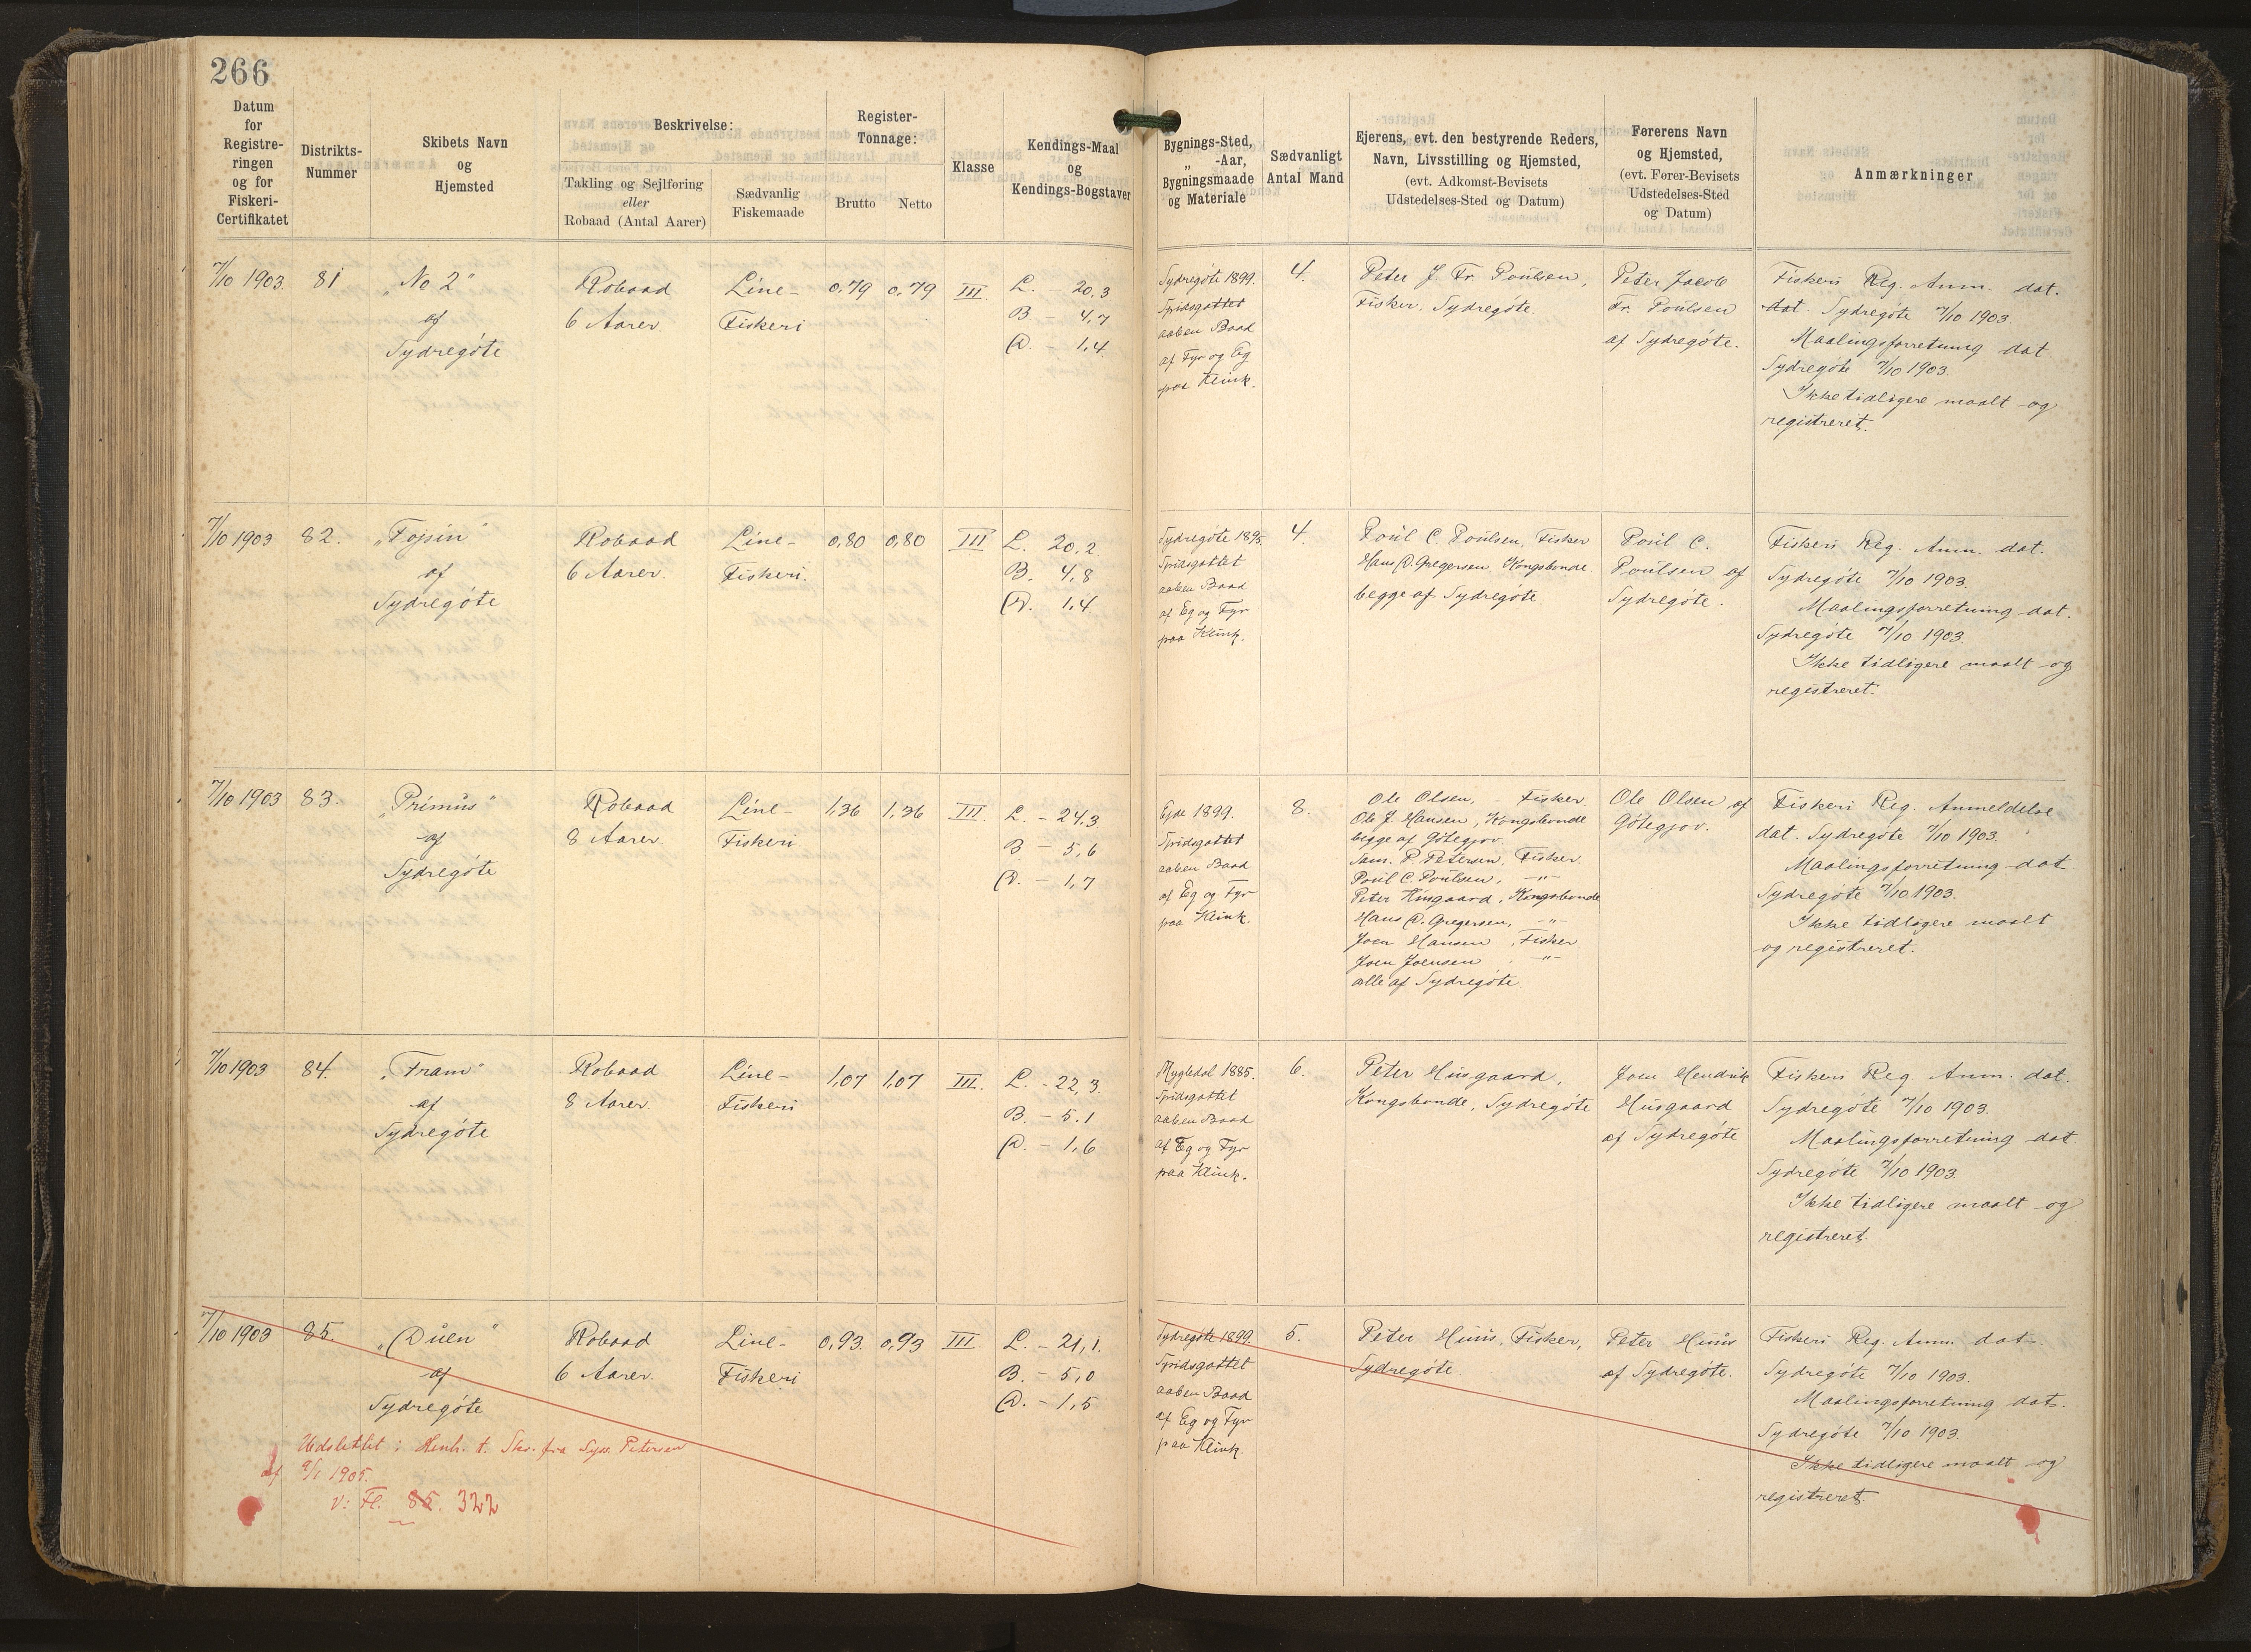 266
Datum
for
Registre-
ringen
og for
Fiskeri-
Certifikatet
Distrikts-
Nummer
Skibets Navn
og
Hjemsted
Beskrivelse:
Takling og Sejlføring
eller
Robaad (Antal Aarer)
Sædvanlig
Fiskemaade
Register-
Tonnage:
Brutto
Netto
Klasse
Kendings-Maal
og
Kendings-Bogstaver
Bygnings-Sted,
„ -Aar,
Bygningsmaade
og Materiale
Sædvanligt
Antal Mand
Ejerens, evt. den bestyrende Reders,
Navn, Livsstilling og Hjemsted,
(evt. Adkomst-Bevisets
Udstedelses-Sted og Datum)
Førerens Navn
og Hjemsted,
(evt. Fører-Bevisets
Udstedelses-Sted
og Datum)
Anmærkninger
7/10 1903.
81
„No 2"
af
Sydregöte
Robaad
6 Aarer.
Line-
Fiskeri
0,79
0,79
III.
L. - 20,3
B - 4,7
D. - 1,4
Sydregöte 1899.
Spidsgattet
aaben Baad
af Fyr og Eg
paa Klink.
4.
Peter J Fr. Poulsen,
Fisker, Sydregöte.
Peter Jacob
Fr. Poulsen
af Sydregöte.
Fiskeri Reg. Anm. dat.
dat. Sydregöte 7/10 1903.
Maalingsforretning dat
Sydregöte 7/10 1903.
Ikke tidligere maalt og
registreret.
7/10 1903
82.
„Fojsin"
af
Sydregöte
Robaad
6 Aarer.
Line-
Fiskeri.
0,80
0,80
III
L. 20,2
B. 4,8
D. 1,4
Sydregöte 1895.
Spidsgattet
aaben Baad
af Eg og Fyr
paa Klink.
4.
Poul C. Poulsen, Fisker
Hans D. Gregersen, Kongsbonde
begge af Sydregöte
Poul C.
Poulsen af
Sydregöte.
Fiskeri Reg. Anm. dat.
Sydregöte 7/10 1903.
Maalingsforretning dat.
Sydregöte 7/10 1903.
Ikke tidligere maalt og
registreret.
7/10 1903
83.
„Primus"
af
Sydregöte
Robaad
8 Aarer
Line-
Fiskeri
1,36
1,36
III.
L. - 24,3
B. - 5,6
D. - 1,7
Ejde 1899.
Spidsgattet
aaben Baad
af Eg og Fyr
paa Klink.
8.
Ole Olsen, Fisker
Ole J. Hansen, Kongsbonde
begge af Götegjov.
Sam. P. Petersen, Fisker
Poul C. Poulsen, -"-
Peter Husgaard, Kongsbonde
Hans D. Gregersen, -"-
Joen Hansen, Fisker
Joen Joensen -"-
alle af Sydregöte.
Ole Olsen af
Götegjov.
Fiskeri Reg. Anmeldelse
dat. Sydregöte 7/10 1903.
Maalingsforretning dat
Sydregöte 7/10 1903.
Ikke tidligere maalt
og registreret.
7/10 1903
84.
„Fram"
af
Sydregöte
Robaad
8 Aarer.
Line-
Fiskeri
1,07
1,07
III.
L. - 22,3.
B. - 5.1
D. - 1,6
Mygledal 1885.
Spidsgattet
aaben Baad
af Eg og Fyr
paa Klink.
6.
Peter Husgaard,
Kongsbonde, Sydregöte
Joen Hendrik
Husgaard
af Sydregöte
Fiskeri Reg Anm. dat.
Sydregöte 7/10 1903.
Maalingsforretning dat.
Sydregöte 7/10 1903.
Ikke tidligere maalt og
registreret.
7/10 1903
85.
„Duen"
af
Sydregöte
Robaad
6 Aarer.
Line-
Fiskeri
0,93.
0,93
III
L. - 21,1.
B. - 5,0
D. - 1,5
Sydregöte 1899.
Spidsgattet
aaben Baad
af Eg og Fyr
paa Klink.
5.
Peter Huus, Fisker,
Sydregöte
Peter Huus
af Sydregöte.
Fiskeri Reg. Anm. dat.
Sydregöte 7/10 1903.
Maalingsforretning dat.
Sydregöte 7/10 1903.
Ikke tidligere maalt og
registreret.
Udslettet i Henh. t. Skr. fra Sys. Petersen
af 9/1 1905.
v: Fl. 85. 322